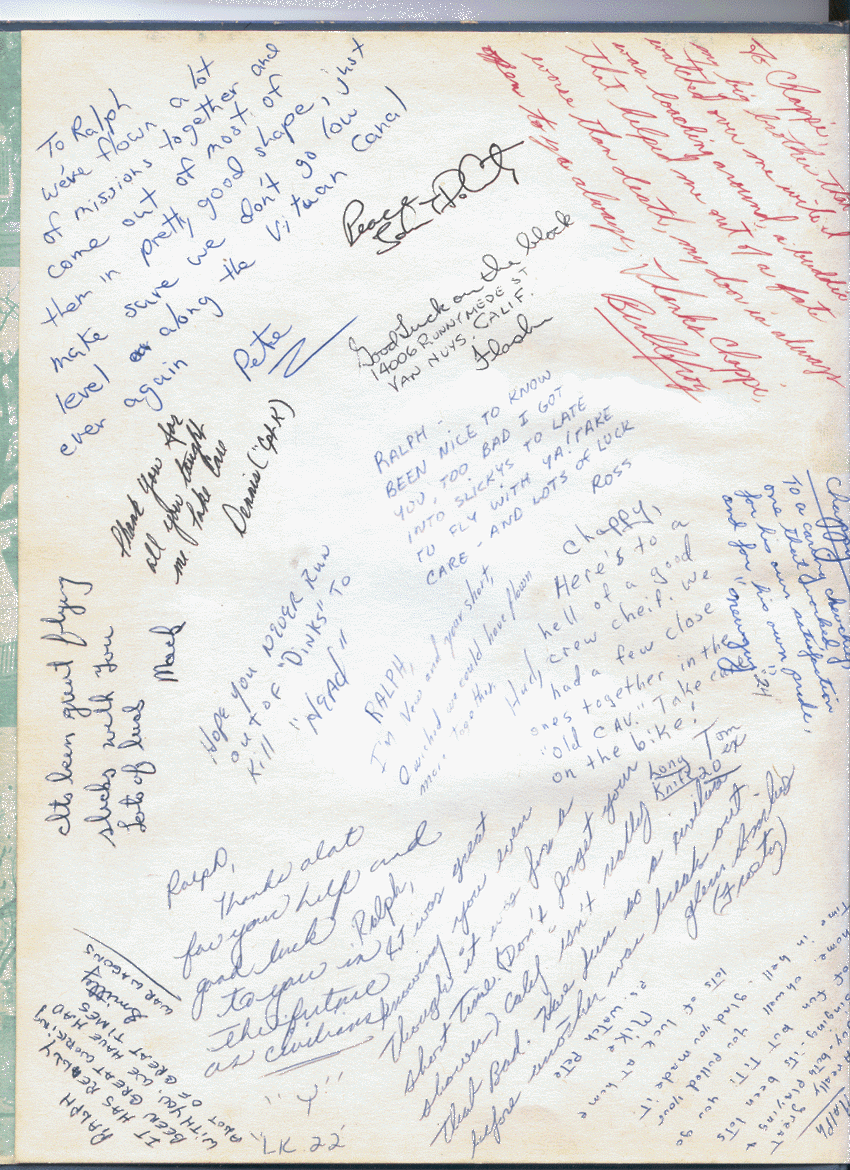 To Ralph
we've flown a lot
of missions together and
come out of most of
them in pretty good shape, just
make sure we don't go low
level along the Vitman Canal
ever again
Pete
Peace
Good Luck on the block
14006 RUNNYMEDE ST
VAN NUYS, CALIF.
Flash
To Chappi,
my big brother that
watched over me while I
was loading around, a buddie
that helped me out of a fate
worse than death, my door is always
open to ya always, Thanks Chappi,
Bullfrog
Thank you for
all you taught
me Take Care
Dennis
RALPH -
BEEN NICE TO KNOW
YOU, TOO BAD I GOT
INTO SLICKYS TO LATE
TO FLY WITH YA! TAKE
CARE - AND LOTS OF LUCK
ROSS
chappy
To a candy
one that worked
for his own satisfaction
and for his own pride,
and for "
24
Its been great flying
slicks with you
Lots of luck
Mach
Hope you NEVER RUN
OUT OF "DINKS" TO
Kill "HEAD"
RALPH,
I'm new and your short,
wished we could have flown
more together
Chappy,
Here's to a
hell of a good
Huey crew cheif. We
had a few close
ones together in the
"old CAV." Take care
on the bike!
Tom
Long
Knife 20
Ralph,
Thanks alot
for your help and
good luck
to you in
the future
as civilians
"Y"
"LK 22"
Ralph,
It was great
knowing you even
thought it was for a
short time. (Don't forget your
shower) Calif isn't really
that Bad. Have fun as a civilian
before another war breaks out
Glenn
(Frosty)
RALPH
IT HAS REALLY
BEEN GREAT WORKING
WITH YOU. WE HAVE HAD
ALOT OF GREAT TIMES
Smitty
WAR WAGONS
Ralph
really great
playing &
been lots
of fun but TiTi you go
home
in hell. glad you pulled your
time
glad you made it.
lots of luck at home
Mike
P.S. watch Pete